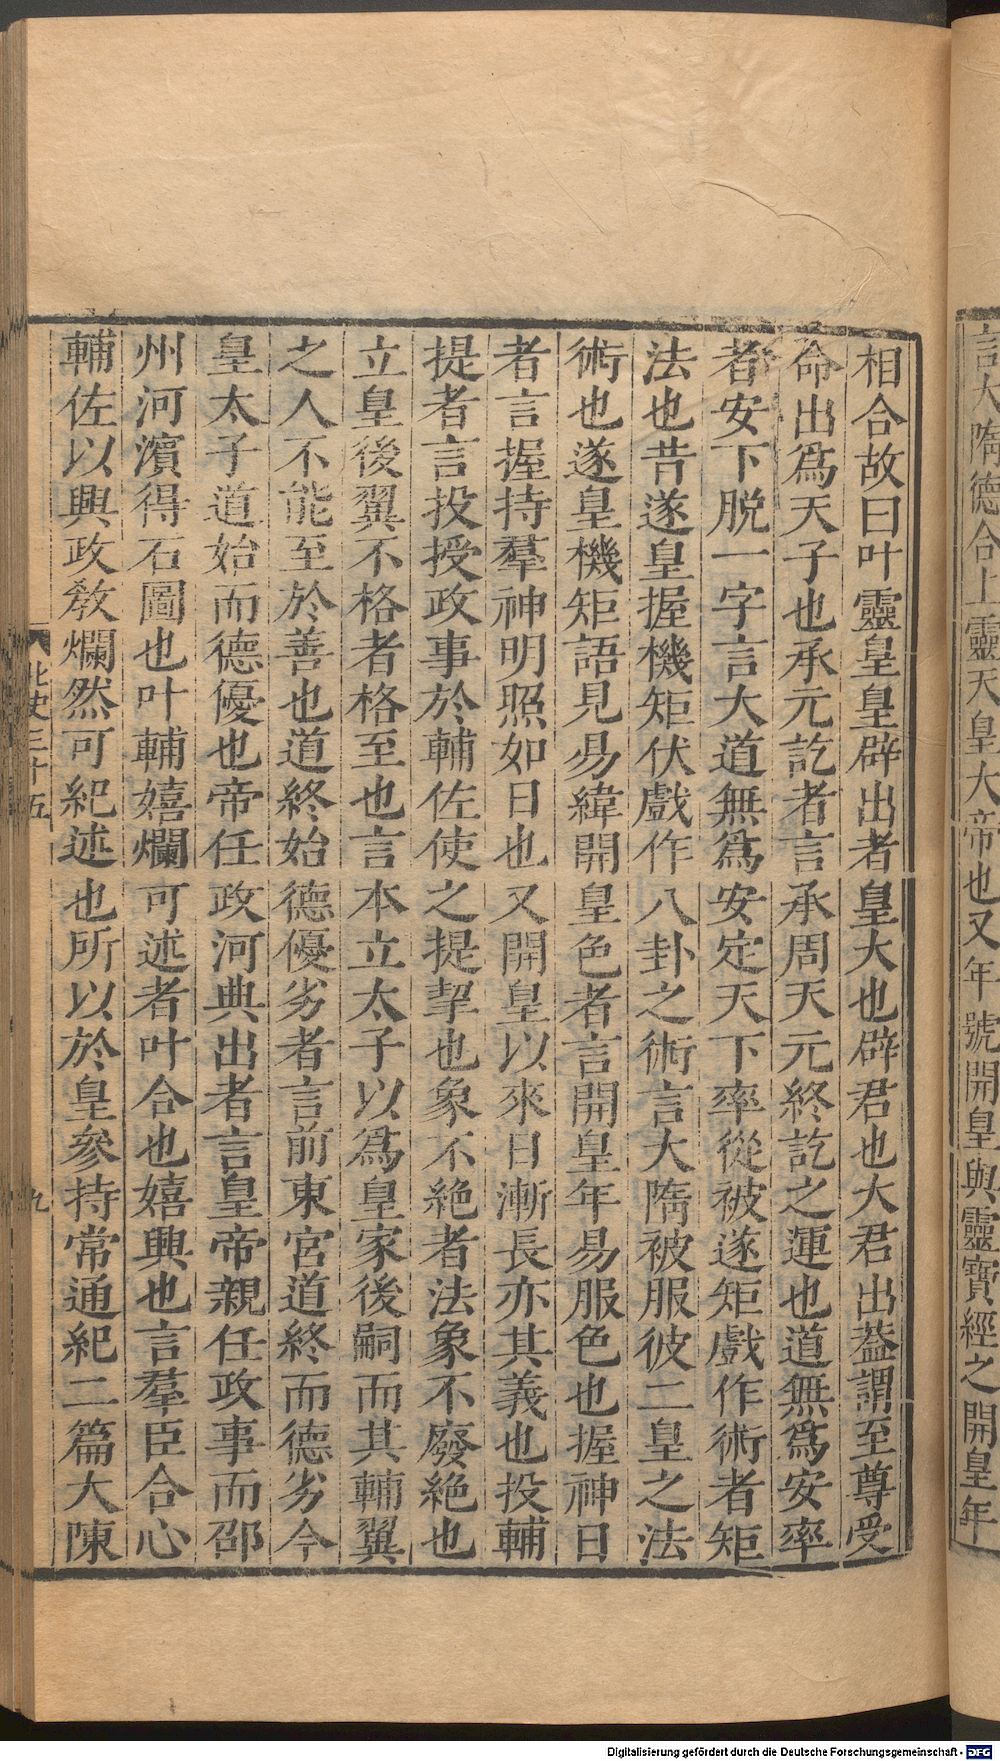 言大隋德合上靈天皇大帝也又年號開皇與靈寶經之開皇年
相合故曰叶靈皇皇辟出者皇大也辟君也大君出蓋謂至尊受
命出爲天子也承元訖者言承周天元終訖之運也道無爲安率
者安下脫一字言大道無爲安定天下率從被遂矩戲作術者矩
法也昔遂皇握機矩伏戲作八卦之術言大隋被服彼二皇之法
術也遂皇機矩語見易緯開皇色者言開皇年易服色也握神日
者言握持羣神明照如日也又開皇以來日漸長亦其義也投輔
提者言投授政事於輔佐使之提挈也象不絶者法象不廢絶也
立皇後翼不格者格至也言本立太子以爲皇家後嗣而其輔翼
之人不能至於善也道終始德優劣者言前東宮道終而德劣今
皇太子道始而德優也帝任政河典出者言皇帝親任政事而邵
州河濵得石圖也叶輔嬉爛可述者叶合也嬉興也言羣臣合心
輔佐以興政教爛然可紀述也所以於皇參持常通紀二篇大陳
北史三十五
九
Digitalisierung gefördert durch die Deutsche Forschungsgemeinschaft - DFG